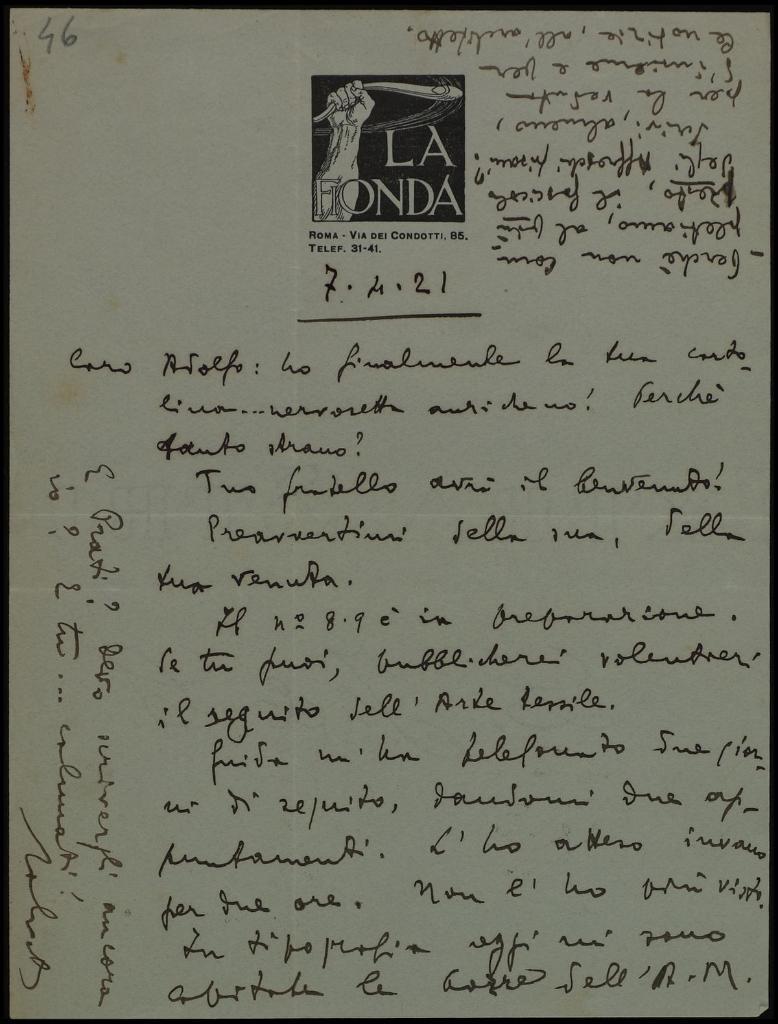 46
LA
FIONDA
ROMA - VIA DEI CONDOTTI, 85.
TELEF. 31-41.
7. 4. 21
Caro Adolfo: ho finalmente la tua carto-
lina... nervosetta anzicheno! Perchè
tanto strano?
Tuo fratello avrà il benvenuto!
Preavvertimi della sua, della
tua venuta.
Il nº 8.9 è in preparazione.
Se tu puoi, pubblicherei volentieri
il seguito dell'Arte tessile.
Guido m'ha telefonato due gior-
ni di seguito, dandomi due ap-
puntamenti. L'ho atteso invano
per due ore. Non l'ho più visto.
In tipografia oggi mi sono
capitate le bozze dell'A.M.
E Prati? Devo scrivergli ancora
io? E tu... calmati!
- Perchè non com-
pletiamo, al più
presto, il fascicolo
degli Affreschi pisani?
Scrivi, almeno,
per la veduta
d'insieme e per
le notizie, all'architetto.